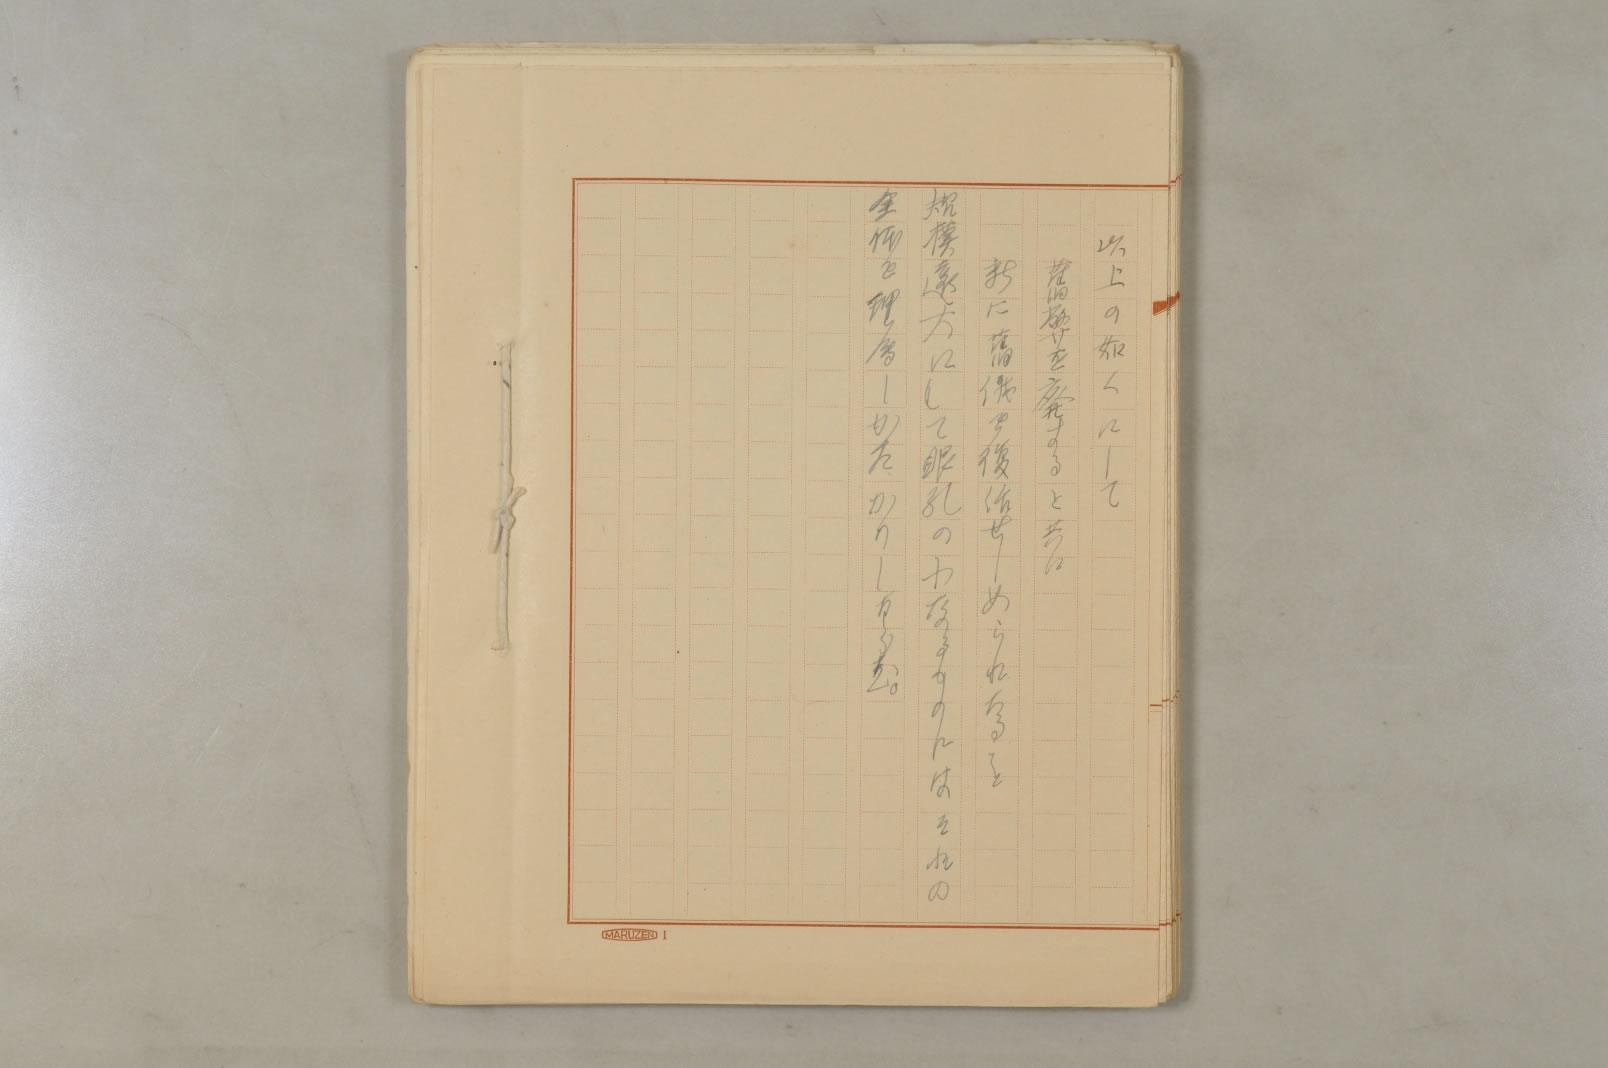 以上の如くにして
舊弊を廃すると共に
新に舊儀も復活せしめられたること
規模遠大にして眼孔の小なるものにはそれの
全体を理會しかたかりしなる
MARUZEN I